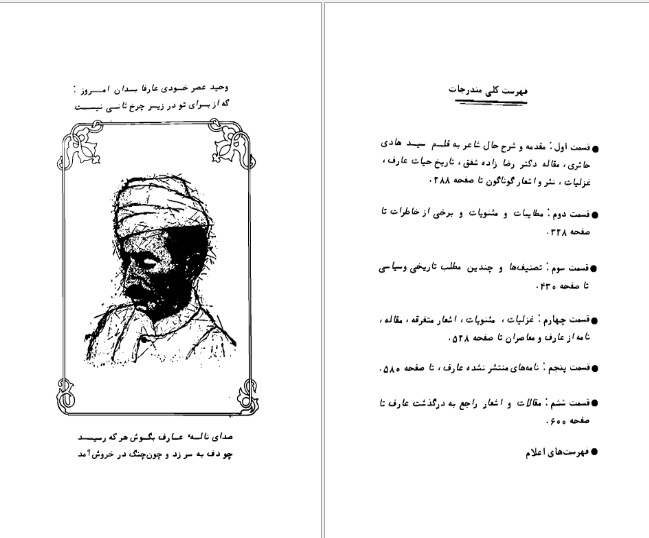 فهرست کلی مندرجات
● قسمت اول: مقدمه و شرح حال شاعر به قلم سید هادی
حائری، مقاله دکتر رضا زاده شفق، تاریخ حیات عارف،
غزلیات، نثر و اشعار گوناگون تا صفحه ۲۸۸.
● قسمت دوم: مطایبات و مثنویات و برخی از خاطرات تا
صفحه ۳۲۸.
● قسمت سوم: تصنیف‌ها و چندین مطلب تاریخی وسیاسی
تا صفحه ۴۳۰.
● قسمت چهارم: غزلیات، مثنویات، اشعار متفرقه، مقاله،
نامه از عارف و معاصران تا صفحه ۵۲۸.
● قسمت پنجم: نامه‌های منتشر نشده عارف، تا صفحه ۵۸۰.
● قسمت ششم: مقالات و اشعار راجع به درگذشت عارف تا
صفحه ۶۰۰.
● فهرست‌های اعلام
وحید عصر خودی عارفا بدان امروز:
که از برای تو در زیر چرخ ثانی نیست
صدای نالهٔ عارف بگوش هر که رسید
چو دف به سر زد و چون‌چنگ در خروش آمد